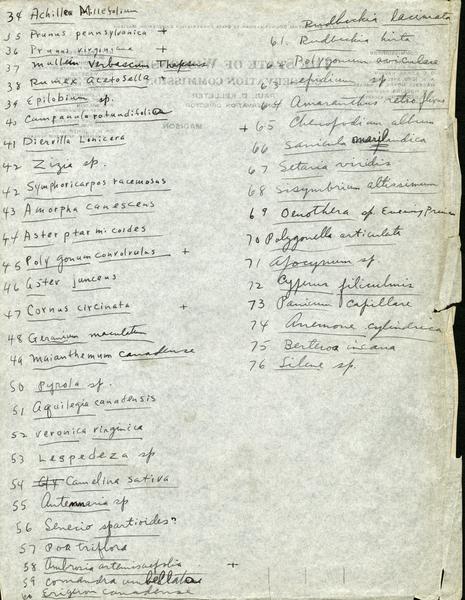 34 Achillea Millefolium
35 Prunus pennsylvanica +
36 Prunus virginiana +
37 mullein Verbascum Thapsus
38 Rumex Acetosella
39 Epilobium sp.
40 Campanula rotundifolia
41 Diervilla Lonicera
42 Zizia sp.
42 Symphoricarpos racemosus
43 Amorpha canescens
44 Aster ptarmicoides
45 Polygonum convolvulus +
46 Aster junceus
47 Cornus circinata +
48 Geranium maculatum
49 Maianthemum canadense
50 Pyrola sp.
51 Aquilegia canadensis
52 Veronica virginica
53 Lespedeza sp
54 Camelina sativa
55 Antennaria sp
56 Senecio spartioides?
57 Poa triflora
58 Ambrosia artemisiaefolia +
59 Comandra umbellata
60 Erigeron canadense
Rudbeckia laciniata
61. Rudbeckia hirta
Polygonum aviculare
63 Lepidium sp
64 Amaranthus retroflexus
+ 65 Chenopodium album
66 Sanicula marilandica
67 Setaria viridis
68 Sisymbrium altissimum
69 Oenothera sp. Evening Prim
70 Polygonella articulata
71 Apocynum sp
72 Cyperus filiculmis
73 Panicum capillare
74 Anemone cylindrica
75 Berteroa incana
76 Silene sp.